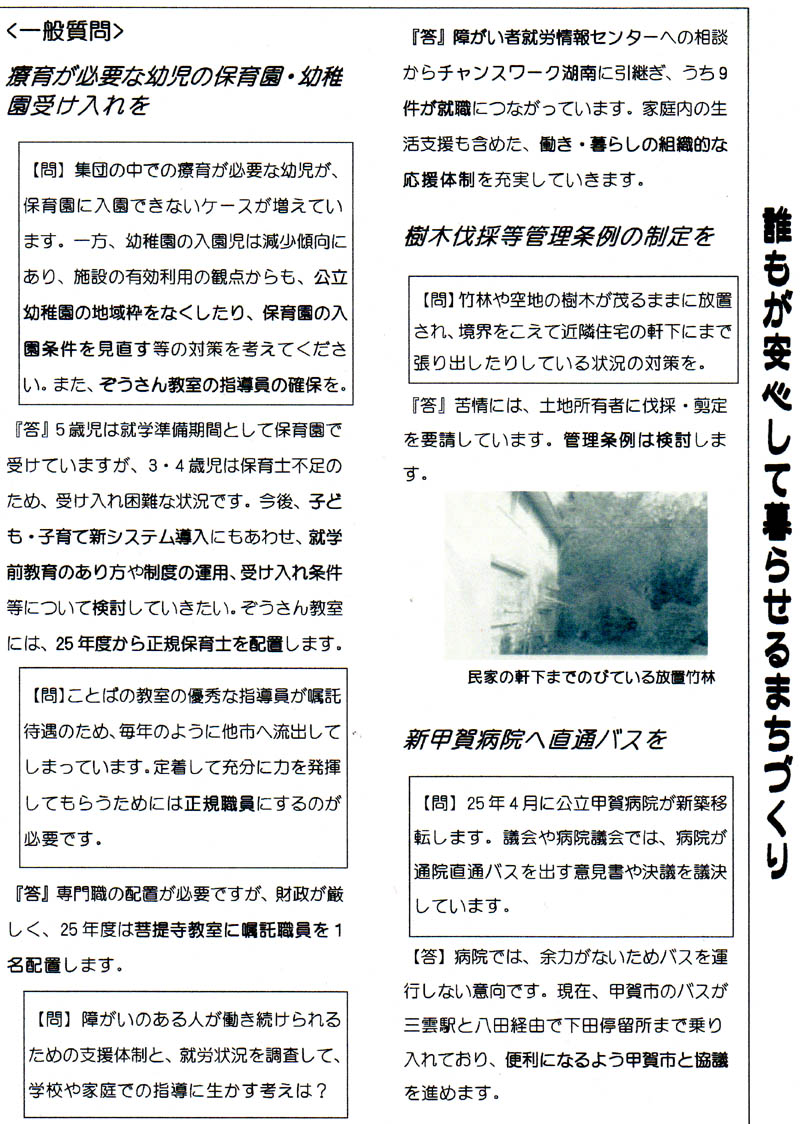 <一般質問>
療育が必要な幼児の保育園・幼稚
園受け入れを
【問】集団の中での療育が必要な幼児が、
保育園に入園できないケースが増えてい
ます。一方、幼稚園の入園児は減少傾向に
あり、施設の有効利用の観点からも、公立
幼稚園の地域枠をなくしたり、保育園の入
園条件を見直す等の対策を考えてくださ
い。また、ぞうさん教室の指導員の確保を。
『答』5歳児は就学準備期間として保育園で
受けていますが、3・4歳児は保育士不足の
ため、受け入れ困難な状況です。今後、子ど
も・子育て新システム導入にもあわせ、就学
前教育のあり方や制度の運用、受け入れ条件
等について検討していきたい。ぞうさん教室
には、25年度から正規保育士を配置します。
【問】ことばの教室の優秀な指導員が嘱託
待遇のため、毎年のように他市へ流出して
しまっています。定着して充分に力を発揮
してもらうためには正規職員にするのが
必要です。
『答』専門職の配置が必要ですが、財政が厳
しく、25年度は菩提寺教室に嘱託職員を1
名配置します。
【問】障がいのある人が働き続けられる
ための支援体制と、就労状況を調査して、
学校や家庭での指導に生かす考えは？
『答』障がい者就労情報センターへの相談
からチャンスワーク湖南に引継ぎ、うち9
件が就職につながっています。家庭内の生
活支援も含めた、働き・暮らしの組織的な
応援体制を充実していきます。
樹木伐採等管理条例の制定を
【問】竹林や空地の樹木が茂るままに放置
され、境界をこえて近隣住宅の軒下にまで
張り出したりしている状況の対策を。
『答』苦情には、土地所有者に伐採・剪定
を要請しています。管理条例は検討しま
す。
民家の軒下までのびている放置竹林
新甲賀病院へ直通バスを
【問】25年4月に公立甲賀病院が新築移
転します。議会や病院議会では、病院が
通院直通バスを出す意見書や決議を議決
しています。
【答】病院では、余力がないためバスを運
行しない意向です。現在、甲賀市のバスが
三雲駅と八田経由で下田停留所まで乗り
入れており、便利になるよう甲賀市と協議
を進めます。
誰もが安心して暮らせるまちづくり